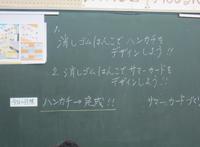 1.
消しゴムはんこでハンカチを
デザインしよう!!
2. 消しゴムはんこでサマーカードを
デザインしよう!!
ハンカチ→完成!!
サマーカードづくり